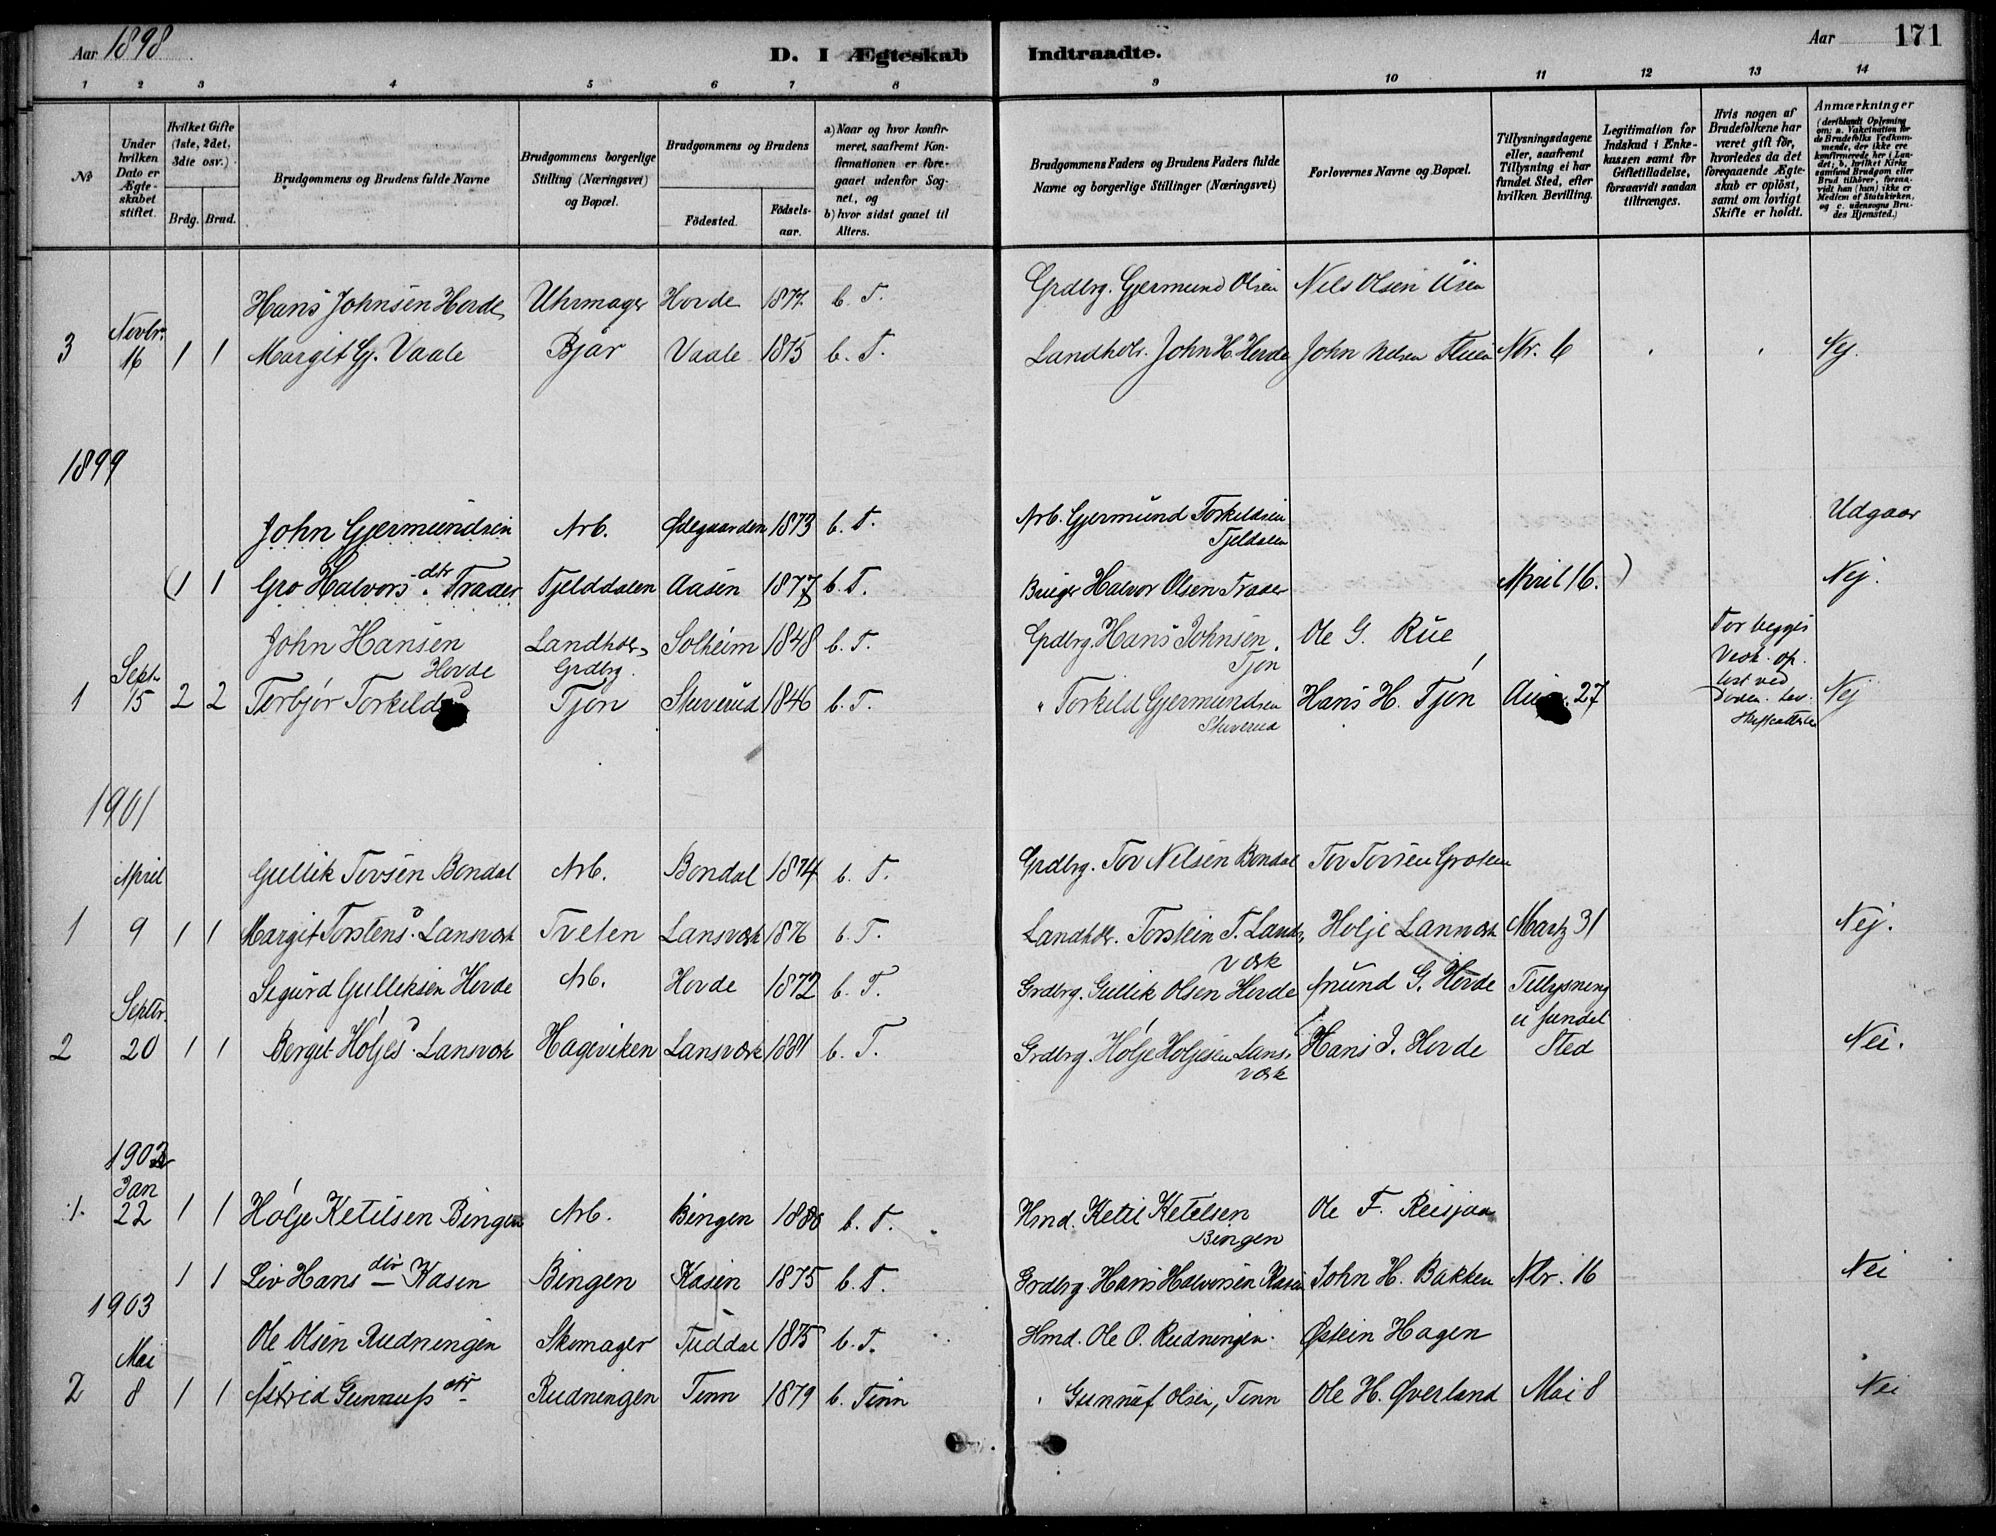 Aar 1898
D. I Ægteskab Indtraadte.
Aar 171
1 2 3 4 5 6 7 8 9 10 11 12 13 14
No
Under hvilken Dato er Ægteskabet stiftet.
Hvilket Gifte (1ste, 2det, 3die osv.)
Brdg. Brud.
Brudgommens og Brudens fulde Navne
Brudgommens borgerlige Stilling (Næringsvei) og Bopæl.
Brudgommens og Brudens
Fødested. Fødselsaar.
a) Naar og hvor konfirmeret, saafremt Konfirmationen er foregaaet udenfor Sognet, og
b) hvor sidst gaaet til Alters.
Brudgommens Faders og Brudens Faders fulde Navne og borgerlige Stillinger (Næringsvei)
Forlovernes Navne og Bopæl.
Tillysningsdagene eller, saafremt Tillysning ei har fundet Sted, efter hvilken Bevilling.
Legitimation for Indskud i Enkekassen samt for Giftetilladelse, forsaavidt saadan tiltrænges.
Hvis nogen af Brudefolkene har været gift før, hvorledes da det foregaaende Ægteskab er opløst, samt om lovligt Skifte er holdt.
Anmærkninger (deriblandt Oplysning om: a. Vakcination for de Brudefolks Vedkommende, der ikke ere konfirmerede her i Landet; b. hvilket Kirkesamfund Brudgom eller Brud tilhører, forsaavidt han (hun) ikke er Medlem af Statskirken, og c. udensogns Brudes Hjemsted.)
Hans Johnsen Hovde Uhrmager Hovde 1877 b. T. Grdbrg. Gjermund Olsen Nils Olsen
3 Novbr. 16 1 1 Margit Gj. Vaale Bjår Vaale 1875 b. T. Landhdr. John H. Hovde John Nelsen Nbr. 6 Nej.
1899
John Gjermundsen Arb. Ødegaarden 1873 b. T. Arb. Gjermund Torkildsen Fjeldalen Udgaar
(1 1 Gro Halvorsdtr. Traaer Fjelddalen Aasen 1877 b. T. Halvor Olsen Traaer April 16.) Nej.
John Hansen Hovde Landhdr. Grdbrg. Solheim 1848 b. T. Grdbrg. Hans Johnsen Tjøn Ole G. Rue For begges Vedk. op-
1 Sept. 15 2 2 Torbjør Torkildsd Tjøn Stuverud 1846 b. T. " Torkild Gjermundsen Stuverud Hans H. Tjøn Aug. 27 løst ved Døden. Nej
1901
April Gullik Tovsen Bondal Arb. Bondal 1874 b. T. Grdbrg. Tov Nelsen Bondal Tov Tovsen
1 9 1 1 Margit Torstensd. Lansværk Tveten Lansværk 1876 b. T. Landhdr. Torstein T. Landsværk Holje Lansværk Martz 31 Nej.
Septbr. Sigurd Gulleksen Hovde Arb. Hovde 1872 b. T. Grdbrg. Gullik Olsen Hovde Amund G. Hovde Tillysning
2 20 1 1 Bergit Høljesd. Lansværk Hageviken Lansværk 1881 b. T. Grdbrg. Hølje Holjesen Lansværk Hans J. Hovde ei fundet Sted Nei.
1902
1. Jan 22 1 1 Hølje Ketilsen Bingen Arb. Bingen 1880 b. T. Hmd. Ketil Ketelsen Bingen Ole F. Reisjaa
1 1 Liv Hansdtr Kasen Bingen Kasen 1875 b. T. Grdbrg. Hans Halvorsen Kasen John H. Bakken Nbr. 16 Nei
1903
Mai Ole Olsen Rudningen Skomager Tuddal 1875 b. T. Hmd. Ole O. Rudningen. Østein Hagen
2 8 1 1 Astrid Gunnufsdtr Rudningen Tinn 1879 b. Tinn " Gunnuf Olsen, Tinn Ole H. Øverland Mai 8 Nei